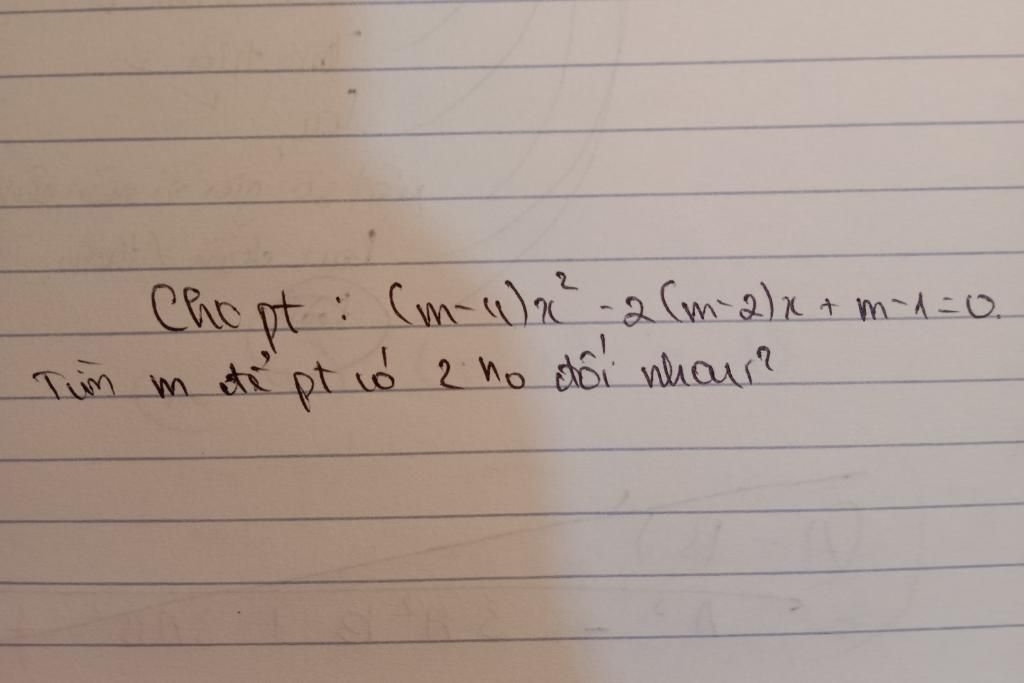 Cho pt : (m-4)x² - 2(m-2)x + m-1=0.
Tìm m để pt có 2 no đối nhau?